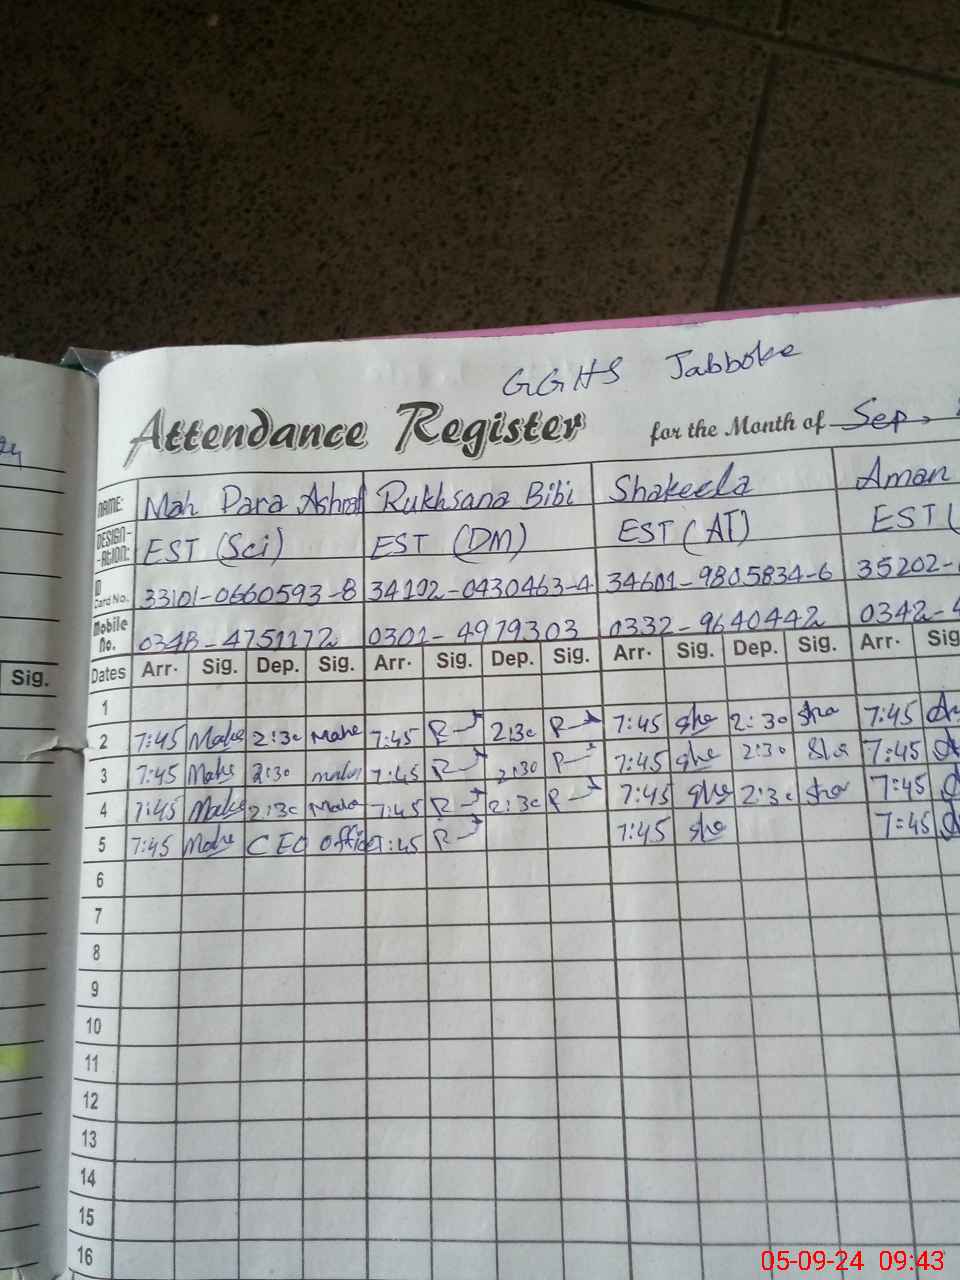 GGHS Jabboke
Attendance Register for the Month of Sep.
NAME: Mah Para Ashraf Rukhsana Bibi Shakeela Aman
DESIGN-ATION: EST (Sci) EST (DM) EST (AT) EST (
ID Card No. 33101-0660593-8 34102-0430463-4 34601-9805834-6 35202-
Mobile No. 0348-4751172 0301-4979303 0332-9640442 0342-4
Sig. Dates Arr. Sig. Dep. Sig. Arr. Sig. Dep. Sig. Arr. Sig. Dep. Sig. Arr. Sig
1
2 7:45 Mahe 2:30 Mahe 7:45 R 2:30 R 7:45 sha 2:30 sha 7:45
3 7:45 Mahe 2:30 7:45 R 2:30 R 7:45 sha 2:30 sha 7:45
4 7:45 Mahe 2:30 Mahe 7:45 R 2:30 R 7:45 sha 2:30 sha 7:45
5 7:45 Mahe CEO office 7:45 R 7:45 sha 7:45
6
7
8
9
10
11
12
13
14
15
16
05-09-24 09:43